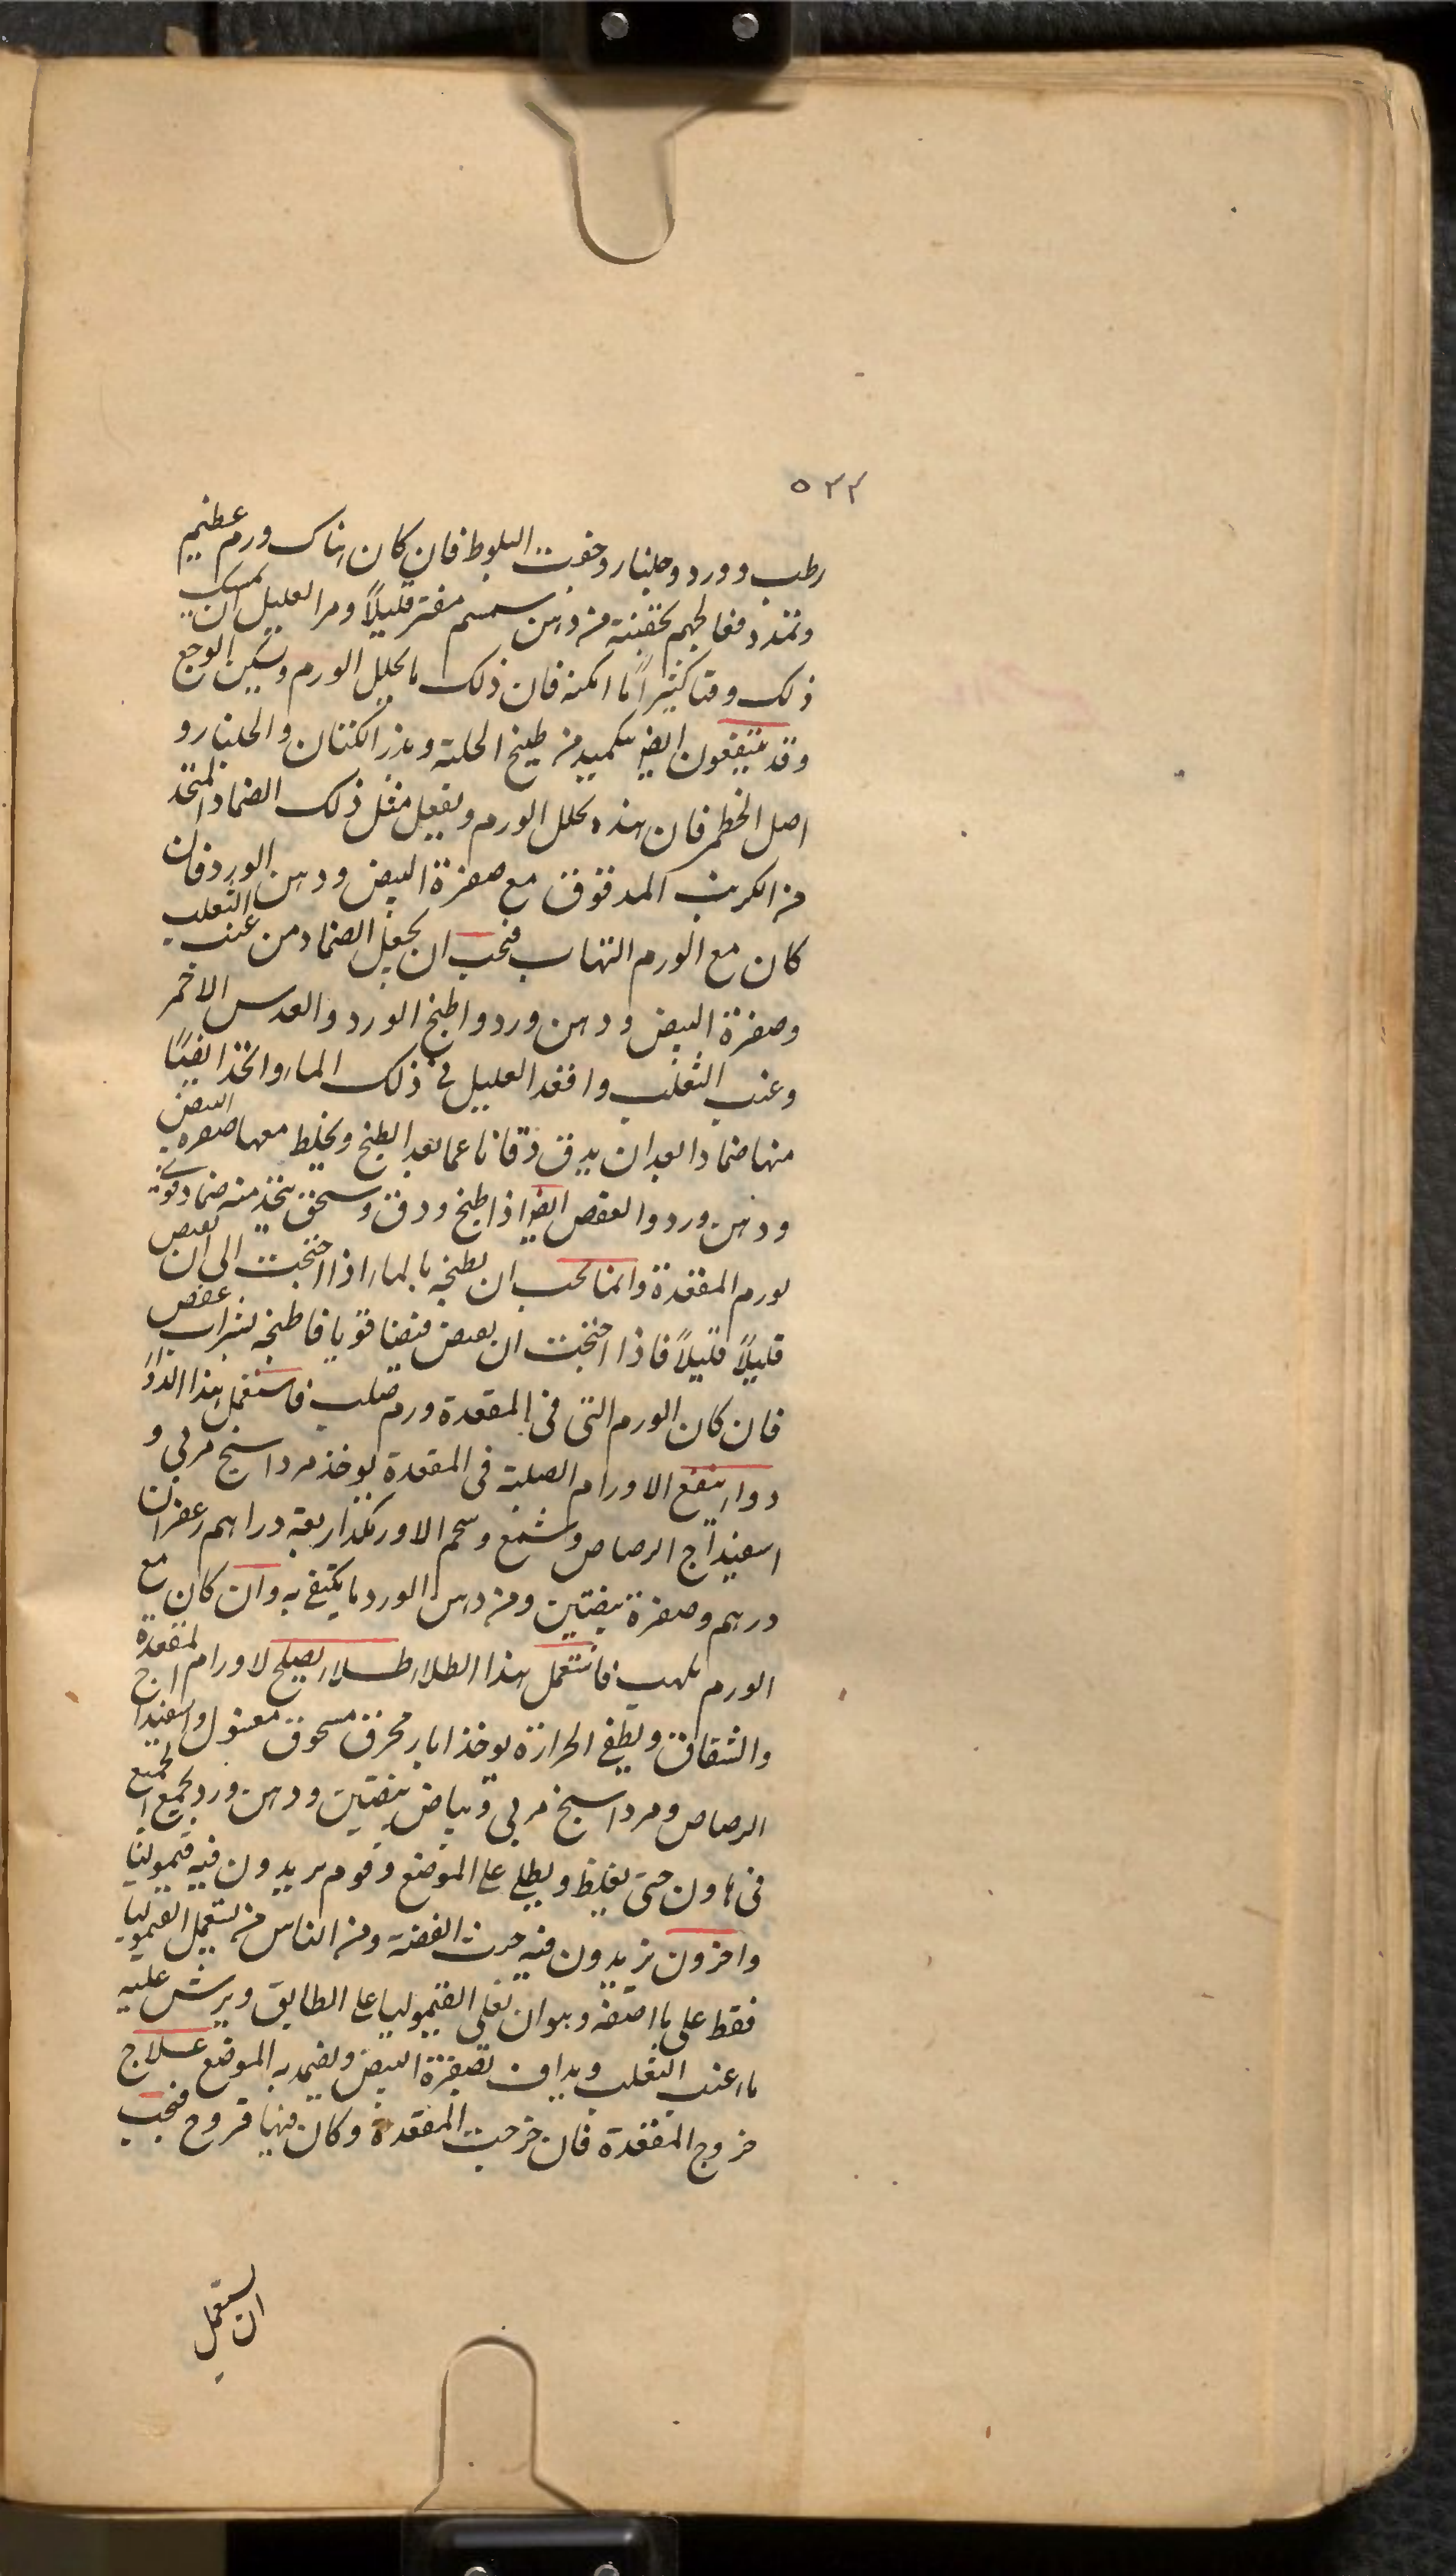 ٥٣٣
رطب وورد وجلنار وجفت البلوط فان كان هناك ورم عظيم
وتمدد فعالجهم بحقنة من دهن سمسم مفتر قليلاً ومر العليل ان يمسك
ذلك وقتا كثيراً ما امكنه فان ذلك ما يحلل الورم ويسكن الوجع
وقد ينتفعون ايضا بتكميد من طبيخ الحلبة وبزر الكتان والجلنار و
اصل الخطمى فان هذه يحلل الورم ويفعل مثل ذلك الضماد المتخذ
من الكرنب المدقوق مع صفرة البيض ودهن الورد فان
كان مع الورم التهاب فيجب ان يجعل الضماد من عنب الثعلب
وصفرة البيض ودهن ورد واطبخ الورد والعدس الاحمر
وعنب الثعلب واقعد العليل فى ذلك الماء واتخذ ايضًا
منها ضمادا بعد ان يدق دقا ناعما بعد الطبخ ويخلط معها صفرة البيض
ودهن ورد والعفص ايضا اذا طبخ ودق وسحق يتخذ منه ضماد قوى
لورم المقعدة وانما يجب ان يطبخه بالماء اذا احتجت الى ان يقبض
قليلاً قليلاً فاذا احتجت ان يقبض قبضا قويا فاطبخه بشراب عفص
فان كان الورم التى فى المقعدة ورم صلب فاستعمل هذا الدواء
دواء ينفع الاورام الصلبة فى المقعدة يوخذ مرداسنج مربى و
اسفيداج الرصاص وشمع وشحم الاوز يكذا اربعة دراهم زعفران
درهم وصفرة بيضتين ومن دهن الورد ما يكتفى به وان كان مع
الورم تلهب فاستعمل هذا الطلاء طلاء يصلح لاورام المقعدة
والشقاق ويطفى الحرارة يوخذ ابار محرق مسحوق مغسول واسفيداج
الرصاص ومرداسنج مربى وبياض بيضتين ودهن ورد يجمع الجميع
فى هاون حتى يغلظ ويطلى على الموضع وقوم يريدون فيه قيموليا
واخرون يزيدون فيه خبث الفضة ومن الناس من يستعمل القيموليا
فقط على ما اصفه وهو ان يغلى القيموليا على الطابق ويرش عليه
ماء عنب الثعلب ويداف بصفرة البيض ويضمد به الموضع علاج
خروج المقعدة فان خرجت المقعدة وكان فيها قروح فيجب
ان يستعمل